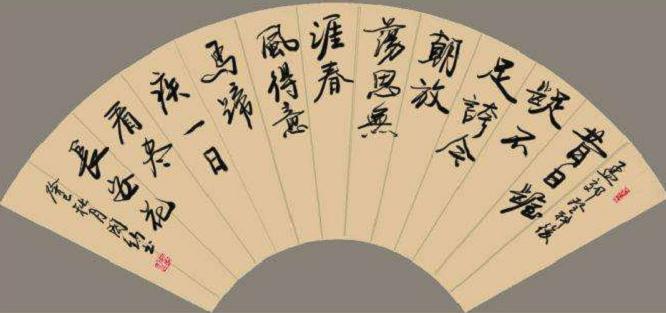 孟郊登科後
昔日齷
齪不
足誇今
朝放
蕩思無
涯春
風得意
馬蹄
疾一日
看尽
長安花
月
书